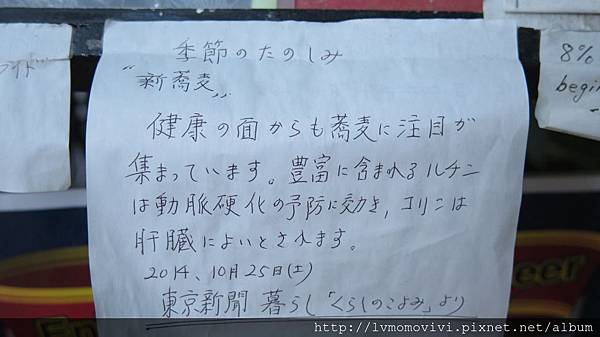 季節のたのしみ
"新蕎麦"
健康の面からも蕎麦に注目が
集まっています。豊富に含まれるルチン
は動脈硬化の予防に効き,コリンは
肝臓によいとされます。
2014、10月25日(土)
東京新聞 暮らし「くらしのこよみ」より
8%
begin
http://lvmomovivi.pixnet.net/album